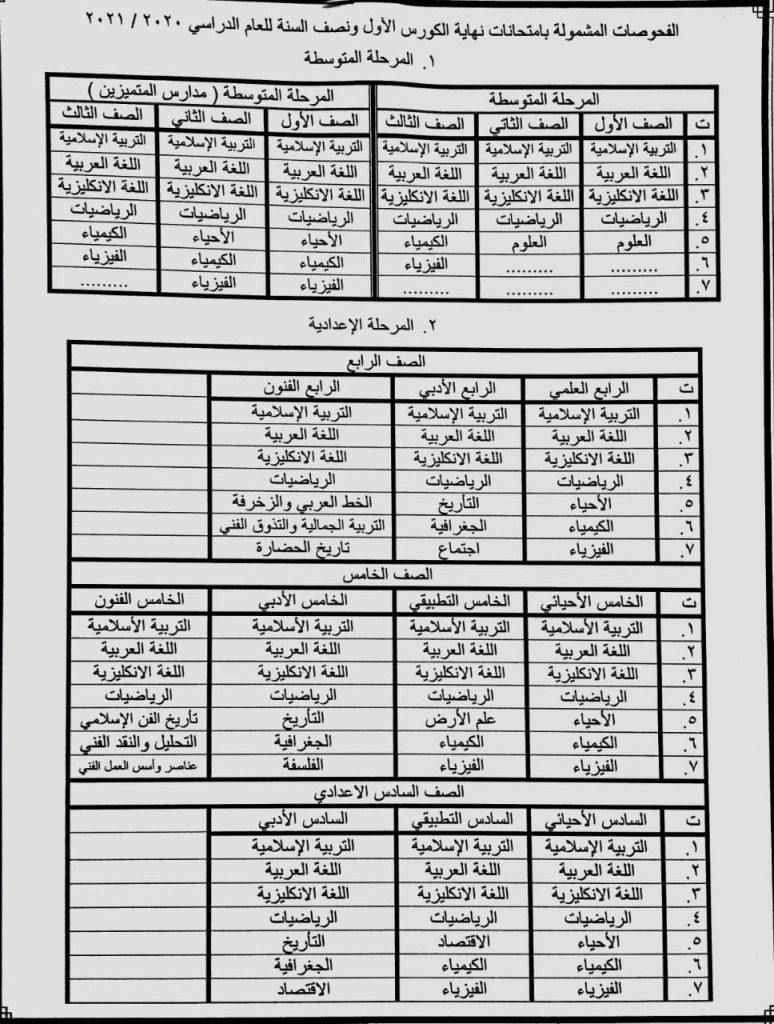 الفحوصات المشمولة بامتحانات نهاية الكورس الأول ونصف السنة للعام الدراسي ٢٠٢٠ / ٢٠٢١
١. المرحلة المتوسطة
المرحلة المتوسطة المرحلة المتوسطة ( مدارس المتميزين )
ت الصف الأول الصف الثاني الصف الثالث الصف الأول الصف الثاني الصف الثالث
١. التربية الإسلامية التربية الإسلامية التربية الإسلامية التربية الإسلامية التربية الإسلامية التربية الإسلامية
٢. اللغة العربية اللغة العربية اللغة العربية اللغة العربية اللغة العربية اللغة العربية
٣. اللغة الانكليزية اللغة الانكليزية اللغة الانكليزية اللغة الانكليزية اللغة الانكليزية اللغة الانكليزية
٤. الرياضيات الرياضيات الرياضيات الرياضيات الرياضيات الرياضيات
٥. العلوم العلوم الكيمياء الأحياء الأحياء الكيمياء
٦. ......... ......... الفيزياء الكيمياء الكيمياء الفيزياء
٧. ......... ......... ......... الفيزياء الفيزياء .........
٢. المرحلة الإعدادية
الصف الرابع
ت الرابع العلمي الرابع الأدبي الرابع الفنون
١. التربية الإسلامية التربية الإسلامية التربية الإسلامية
٢. اللغة العربية اللغة العربية اللغة العربية
٣. اللغة الانكليزية اللغة الانكليزية اللغة الانكليزية
٤. الرياضيات الرياضيات الرياضيات
٥. الأحياء التأريخ الخط العربي والزخرفة
٦. الكيمياء الجغرافية التربية الجمالية والتذوق الفني
٧. الفيزياء اجتماع تاريخ الحضارة
الصف الخامس
ت الخامس الأحيائي الخامس التطبيقي الخامس الأدبي الخامس الفنون
١. التربية الأسلامية التربية الأسلامية التربية الأسلامية التربية الأسلامية
٢. اللغة العربية اللغة العربية اللغة العربية اللغة العربية
٣. اللغة الانكليزية اللغة الانكليزية اللغة الانكليزية اللغة الانكليزية
٤. الرياضيات الرياضيات الرياضيات الرياضيات
٥. الأحياء علم الأرض التأريخ تأريخ الفن الإسلامي
٦. الكيمياء الكيمياء الجغرافية التحليل والنقد الفني
٧. الفيزياء الفيزياء الفلسفة عناصر وأسس العمل الفني
الصف السادس الاعدادي
ت السادس الأحيائي السادس التطبيقي السادس الأدبي
١. التربية الإسلامية التربية الإسلامية التربية الإسلامية
٢. اللغة العربية اللغة العربية اللغة العربية
٣. اللغة الانكليزية اللغة الانكليزية اللغة الانكليزية
٤. الرياضيات الرياضيات الرياضيات
٥. الأحياء الاقتصاد التأريخ
٦. الكيمياء الكيمياء الجغرافية
٧. الفيزياء الفيزياء الاقتصاد